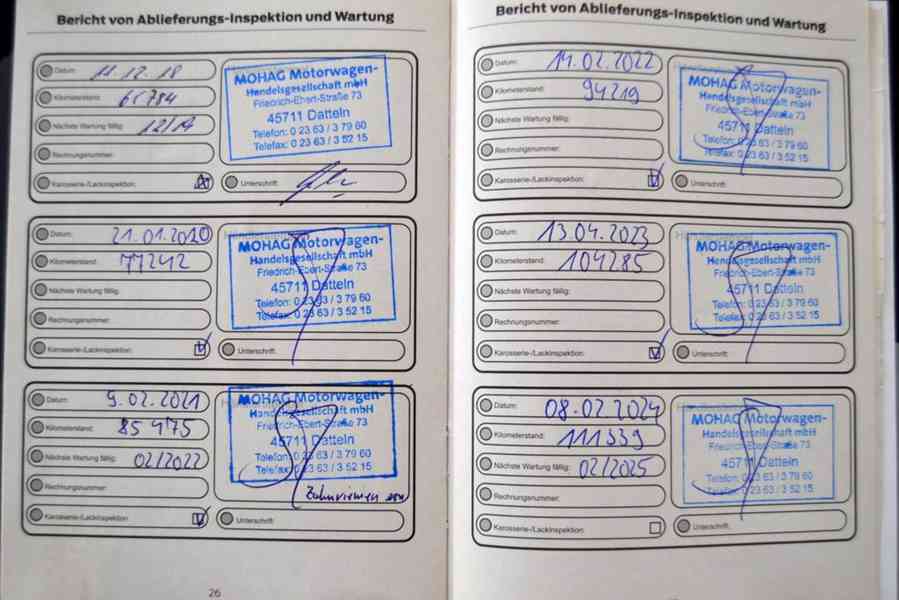 Bericht von Ablieferungs-Inspektion und Wartung
Datum: 11.12.18
Kilometerstand: 65784
Nächste Wartung fällig: 12/19
Rechnungsnummer:
Karosserie-/Lackinspektion:
MOHAG Motorwagen-
Handelsgesellschaft mbH
Friedrich-Ebert-Straße 73
45711 Datteln
Telefon: 0 23 63 / 3 79 60
Telefax: 0 23 63 / 3 52 15
Unterschrift:
Datum: 21.01.2020
Kilometerstand: 77242
Nächste Wartung fällig:
Rechnungsnummer:
Karosserie-/Lackinspektion:
MOHAG Motorwagen-
Handelsgesellschaft mbH
Friedrich-Ebert-Straße 73
45711 Datteln
Telefon: 0 23 63 / 3 79 60
Telefax: 0 23 63 / 3 52 15
Unterschrift:
Datum: 9.02.2021
Kilometerstand: 85475
Nächste Wartung fällig: 02/2022
Rechnungsnummer:
Karosserie-/Lackinspektion:
MOHAG Motorwagen-
Handelsgesellschaft mbH
Friedrich-Ebert-Straße 73
45711 Datteln
Telefon: 0 23 63 / 3 79 60
Telefax: 0 23 63 / 3 52 15
Zahnriemen
Unterschrift:
26
Bericht von Ablieferungs-Inspektion und Wartung
Datum: 14.02.2022
Kilometerstand: 94219
Nächste Wartung fällig:
Rechnungsnummer:
Karosserie-/Lackinspektion:
MOHAG Motorwagen-
Handelsgesellschaft mbH
Friedrich-Ebert-Straße 73
45711 Datteln
Telefon: 0 23 63 / 3 79 60
Telefax: 0 23 63 / 3 52 15
Unterschrift:
Datum: 13.04.2023
Kilometerstand: 104285
Nächste Wartung fällig:
Rechnungsnummer:
Karosserie-/Lackinspektion:
MOHAG Motorwagen-
Handelsgesellschaft mbH
Friedrich-Ebert-Straße 73
45711 Datteln
Telefon: 0 23 63 / 3 79 60
Telefax: 0 23 63 / 3 52 15
Unterschrift:
Datum: 08.02.2024
Kilometerstand: 111339
Nächste Wartung fällig: 02/2025
Rechnungsnummer:
Karosserie-/Lackinspektion:
MOHAG Motorwagen-
Handelsgesellschaft mbH
Friedrich-Ebert-Straße 73
45711 Datteln
Telefon: 0 23 63 / 3 79 60
Telefax: 0 23 63 / 3 52 15
Unterschrift: